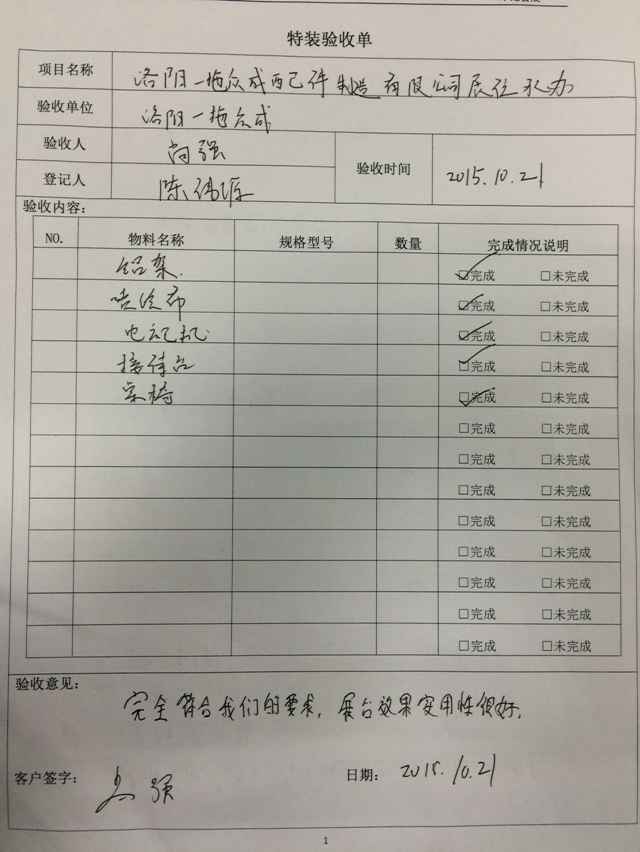 特装验收单
项目名称 洛阳一拖众成配件制造有限公司展位承办
验收单位 洛阳一拖众成
验收人 尚强 验收时间 2015.10.21
登记人 陈伟
验收内容：
NO. 物料名称 规格型号 数量 完成情况说明
铝架 ☑完成 □未完成
喷绘布 ☑完成 □未完成
电视机 ☑完成 □未完成
接待台 ☑完成 □未完成
桌椅 ☑完成 □未完成
□完成 □未完成
□完成 □未完成
□完成 □未完成
□完成 □未完成
□完成 □未完成
□完成 □未完成
□完成 □未完成
□完成 □未完成
验收意见：
完全符合我们的要求，展台效果实用性很好。
客户签字： 尚强 日期： 2015.10.21
1